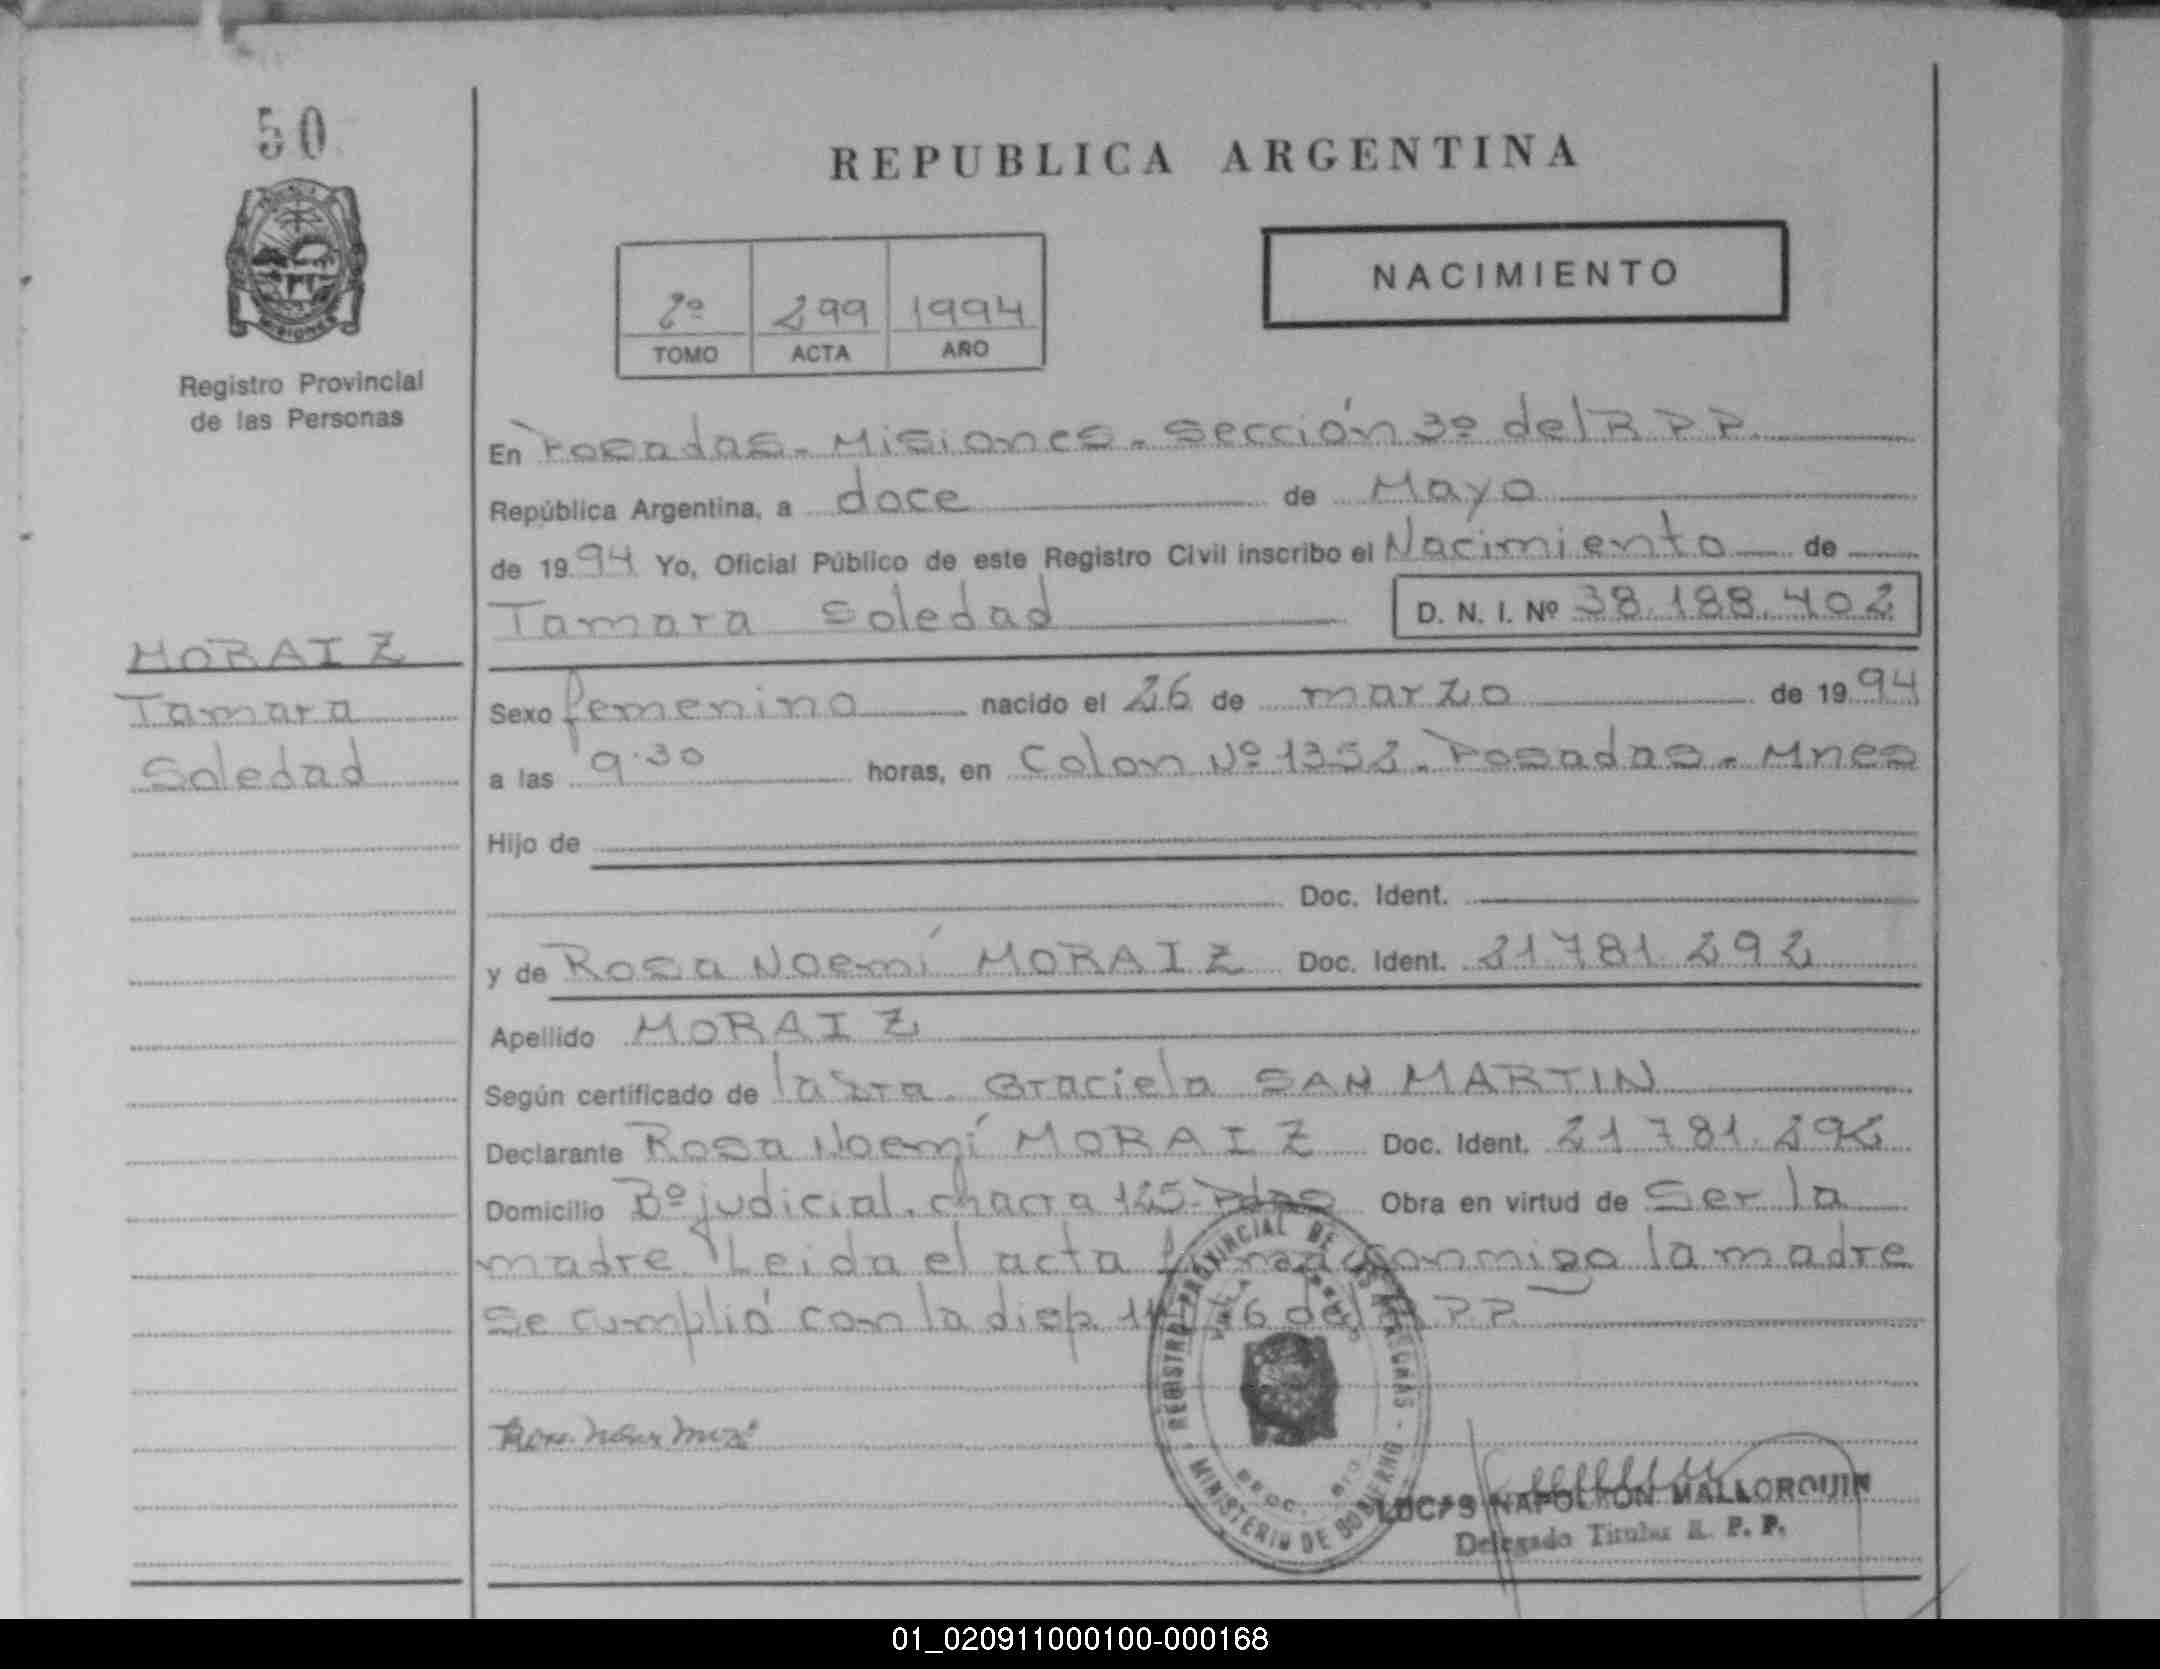 50
REPUBLICA ARGENTINA
NACIMIENTO
2º 299 1994
TOMO ACTA AÑO
Registro Provincial
de las Personas
En Posadas - Misiones - Sección 3º del R P P.
República Argentina, a doce de Mayo
de 1994 Yo, Oficial Público de este Registro Civil inscribo el Nacimiento de
Tamara Soledad D. N. I. Nº 38.188.402
MORAIZ
Tamara
Soledad
Sexo femenino nacido el 26 de marzo de 1994
a las 9.30 horas, en Colon Nº 1352 - Posadas - Mnes
Hijo de
Doc. Ident.
y de Rosa Noemí MORAIZ Doc. Ident. 21 781 292
Apellido MORAIZ
Según certificado de la Dra. Graciela SAN MARTIN
Declarante Rosa Noemí MORAIZ Doc. Ident. 21 781.292
Domicilio Bº judicial. chacra 125- Pdas Obra en virtud de ser la
madre. Leida el acta firma conmigo la madre
Se cumplió con la disp. del R P.P.
REGISTRO PROVINCIAL DE LAS PERSONAS - MINISTERIO DE GOBIERNO
LUCAS NAPOLEON MALLORQUIN
Delegado Titular R. P. P.
01_020911000100-000168